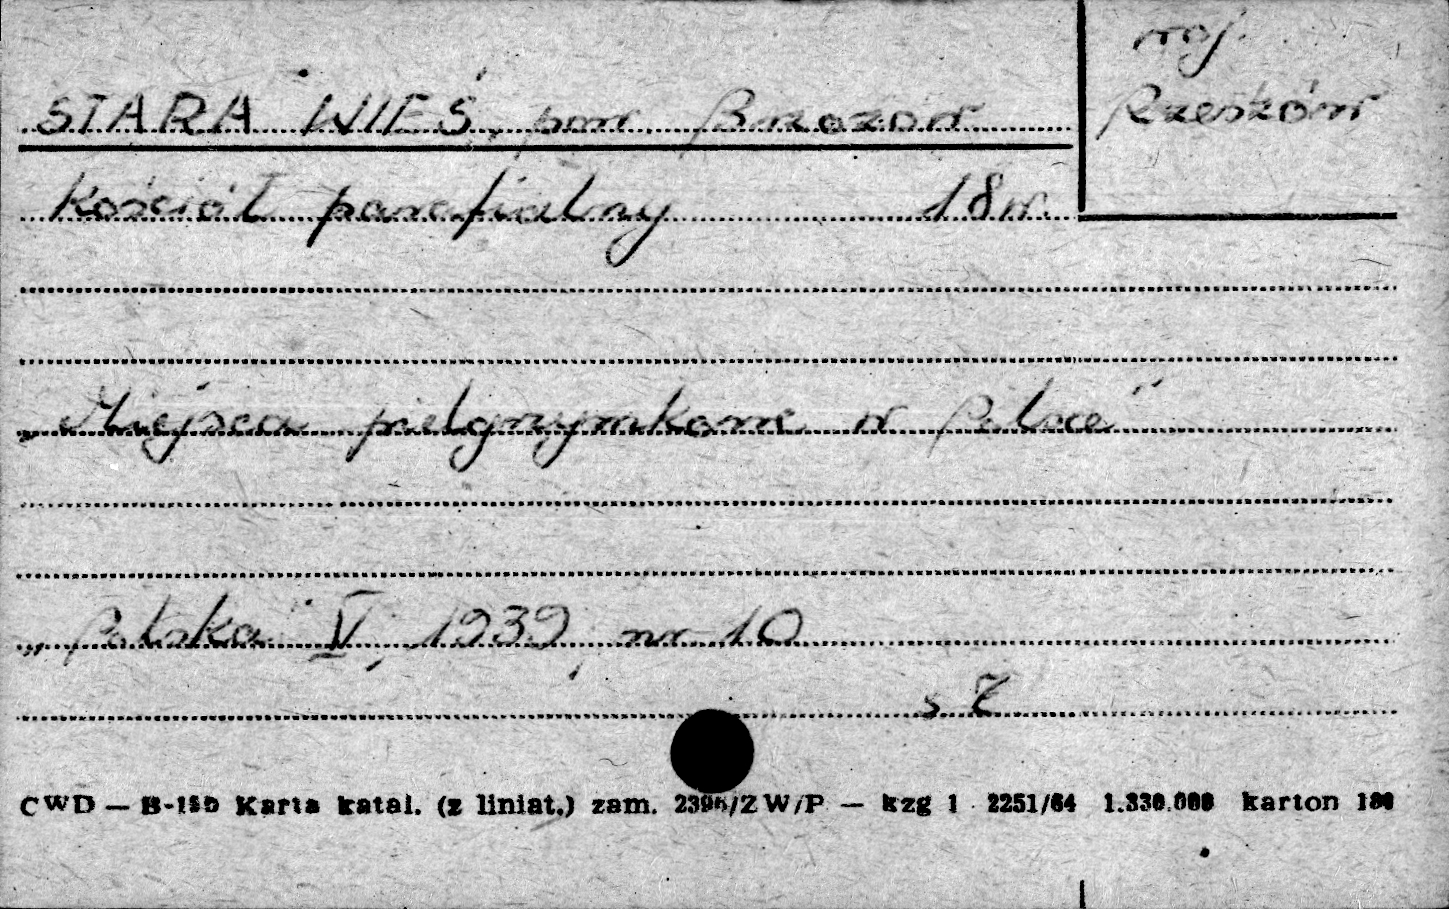 STARA WIEŚ, pow. Brzozów
woj.
Rzeszów
Kościół parafialny 18 w.
„Miejsca pielgrzymkowe w Polsce"
„Polska" V, 1939, nr 10
s 7
CWD — B-155 Karta katal. (z liniat.) zam. 2396/ZW/P — kzg 1 2251/64 1.330.000 karton 180